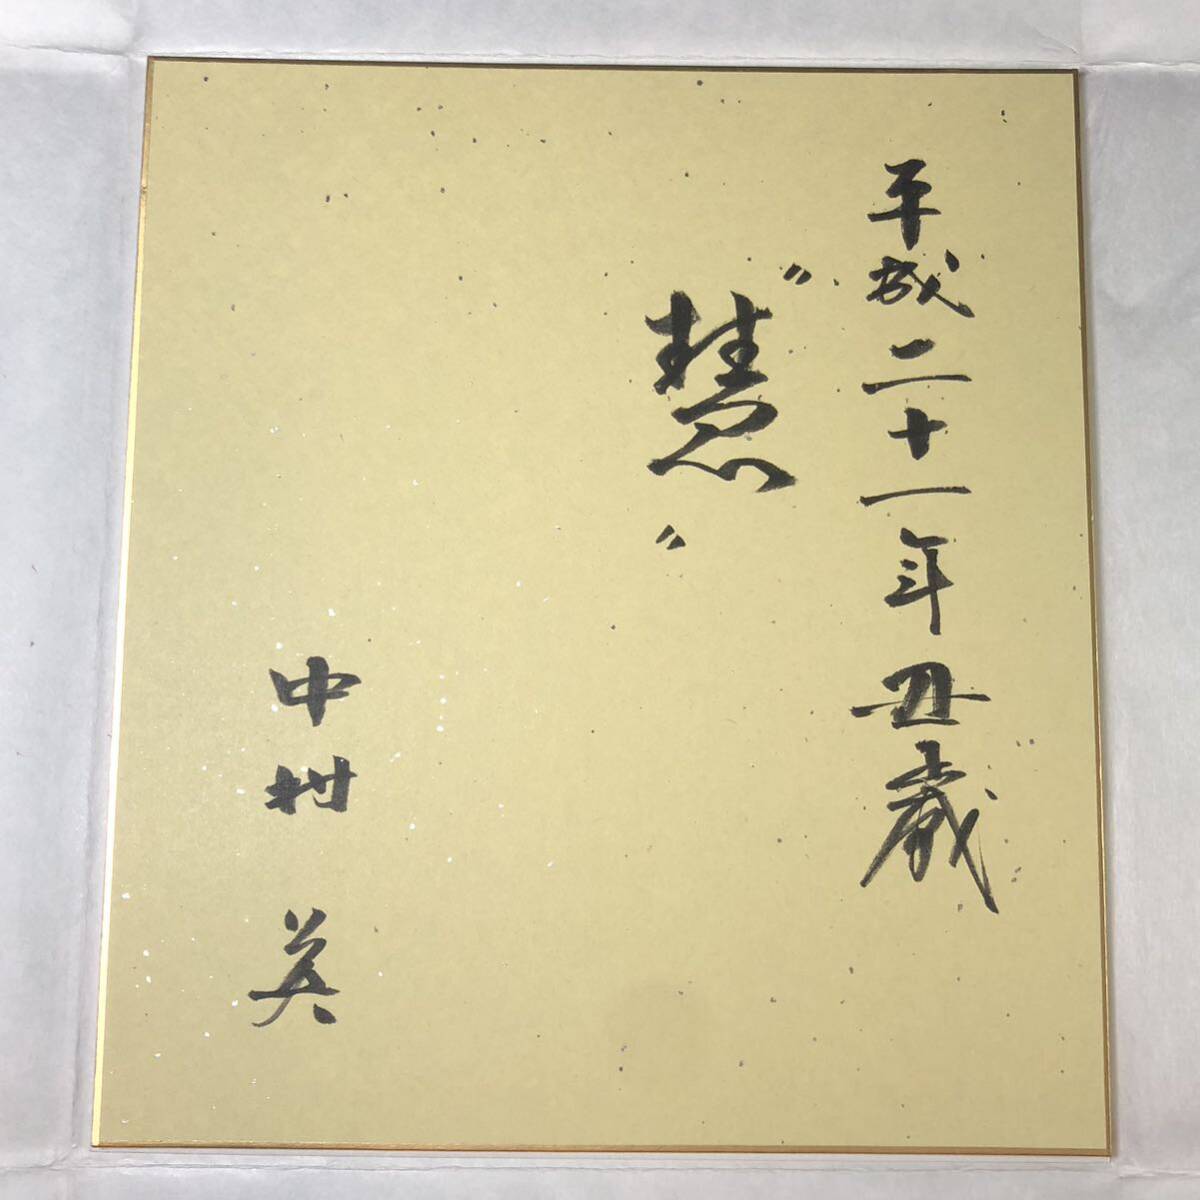 平成二十一年丑歳
〃慧〃
中村英